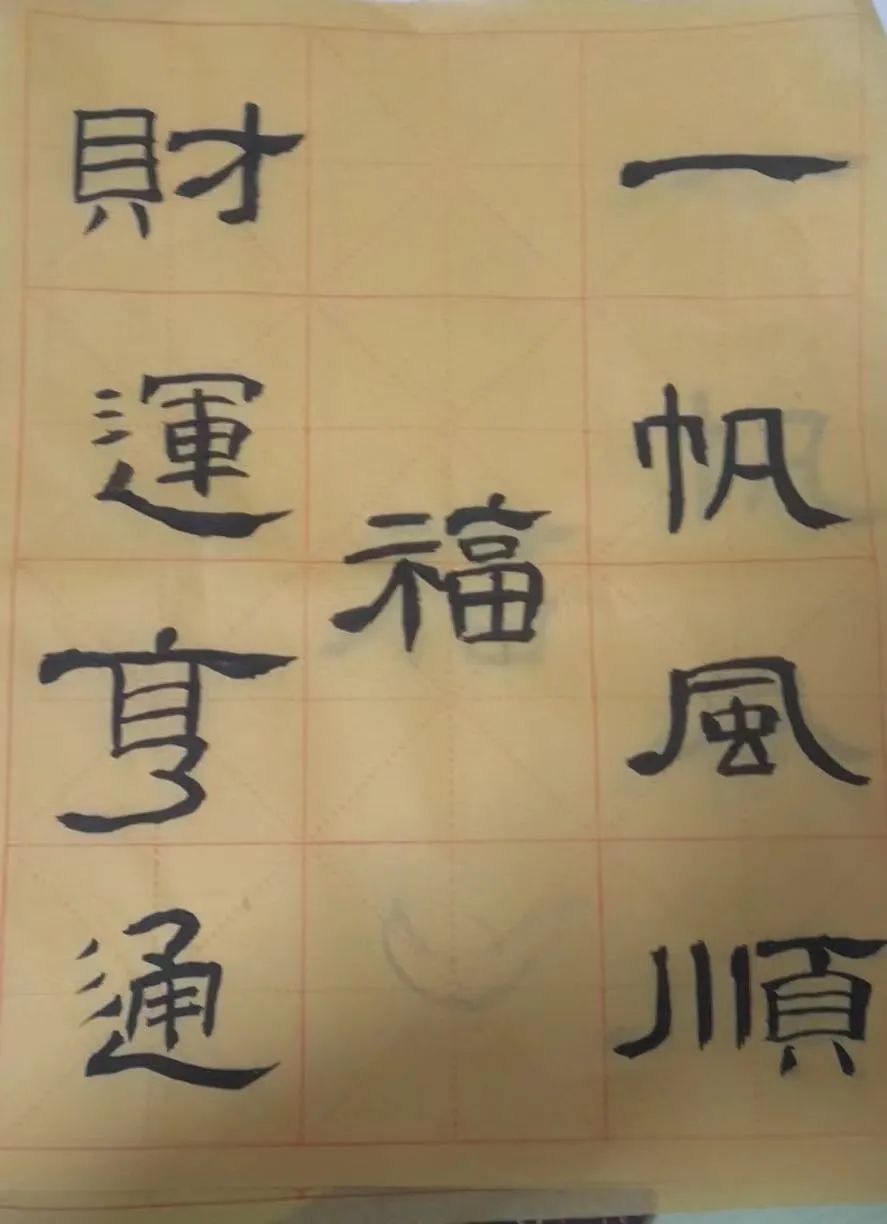 一帆風順
福
財運亨通